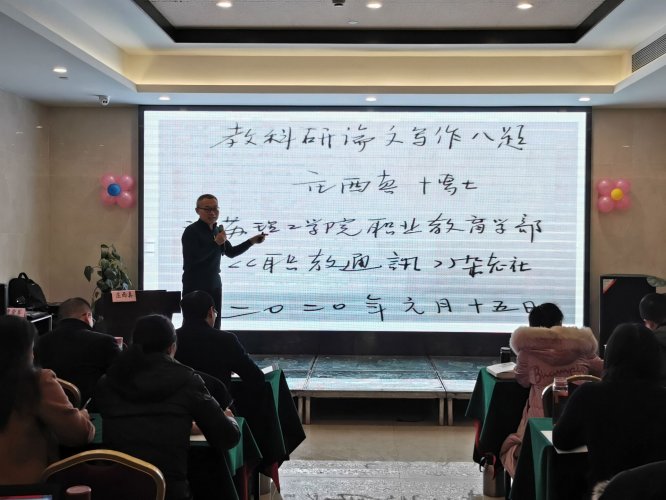 教科研論文写作八题
庄西真 博士
苏理工学院职业教育学部
《职教通訊》杂志社
二〇二〇年元月十五日
庄西真